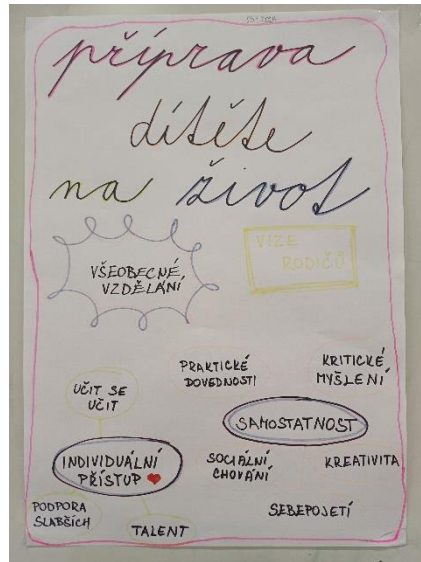 příprava
dítěte
na život
VŠEOBECNÉ
VZDĚLÁNÍ
VIZE
RODIČŮ
PRAKTICKÉ
DOVEDNOSTI
KRITICKÉ
MYŠLENÍ
UČIT SE
UČIT
SAMOSTATNOST
INDIVIDUÁLNÍ
PŘÍSTUP
SOCIÁLNÍ
CHOVÁNÍ
KREATIVITA
PODPORA
SLABŠÍCH
TALENT
SEBEPOJETÍ